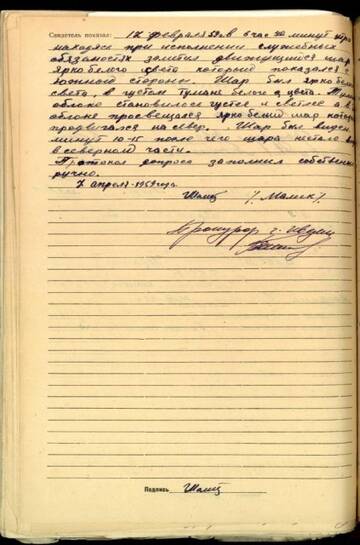 Свидетель показал: 17 февраля 59г в 6 час 40 минут утра
находясь при исполнении служебных
обязаностях заметил движующийся шар
ярко белого цвета который показался с
южной стороны. Шар был ярко белого
света, в густом тумане белого цвета.
облако становилось густея и светлее а в
облаке просвещался ярко белый шар который
продвигался на север. Шар был виден
минут 10-15 после чего шара нестало
в северной части.
Протокол допроса заполнил собственно
ручно.
7 апреля-1959 года.
/Малик/.
Прокурор г. Ивдель
Подпись